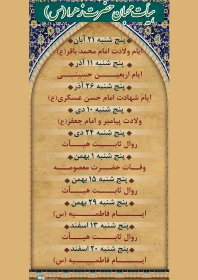 هیأت محبان حضرت زهرا(س)
پنج شنبه ۲۱ آبان
ایام ولادت امام محمد باقر(ع)
پنج شنبه ۱۱ آذر
ایام اربعین حسینی
پنج شنبه ۲۶ آذر
ایام شهادت امام حسن عسکری(ع)
پنج شنبه ۱۰ دی
ولادت پیامبر و امام جعفر(ع)
پنج شنبه ۲۴ دی
روال ثابت هیأت
پنج شنبه ۱ بهمن
وفات حضرت معصومه
پنج شنبه ۱۵ بهمن
روال ثابت هیأت
پنج شنبه ۲۹ بهمن
ایام فاطمیه (س)
پنج شنبه ۱۳ اسفند
روال ثابت هیأت
پنج شنبه ۲۰ اسفند
ایام فاطمیه (س)